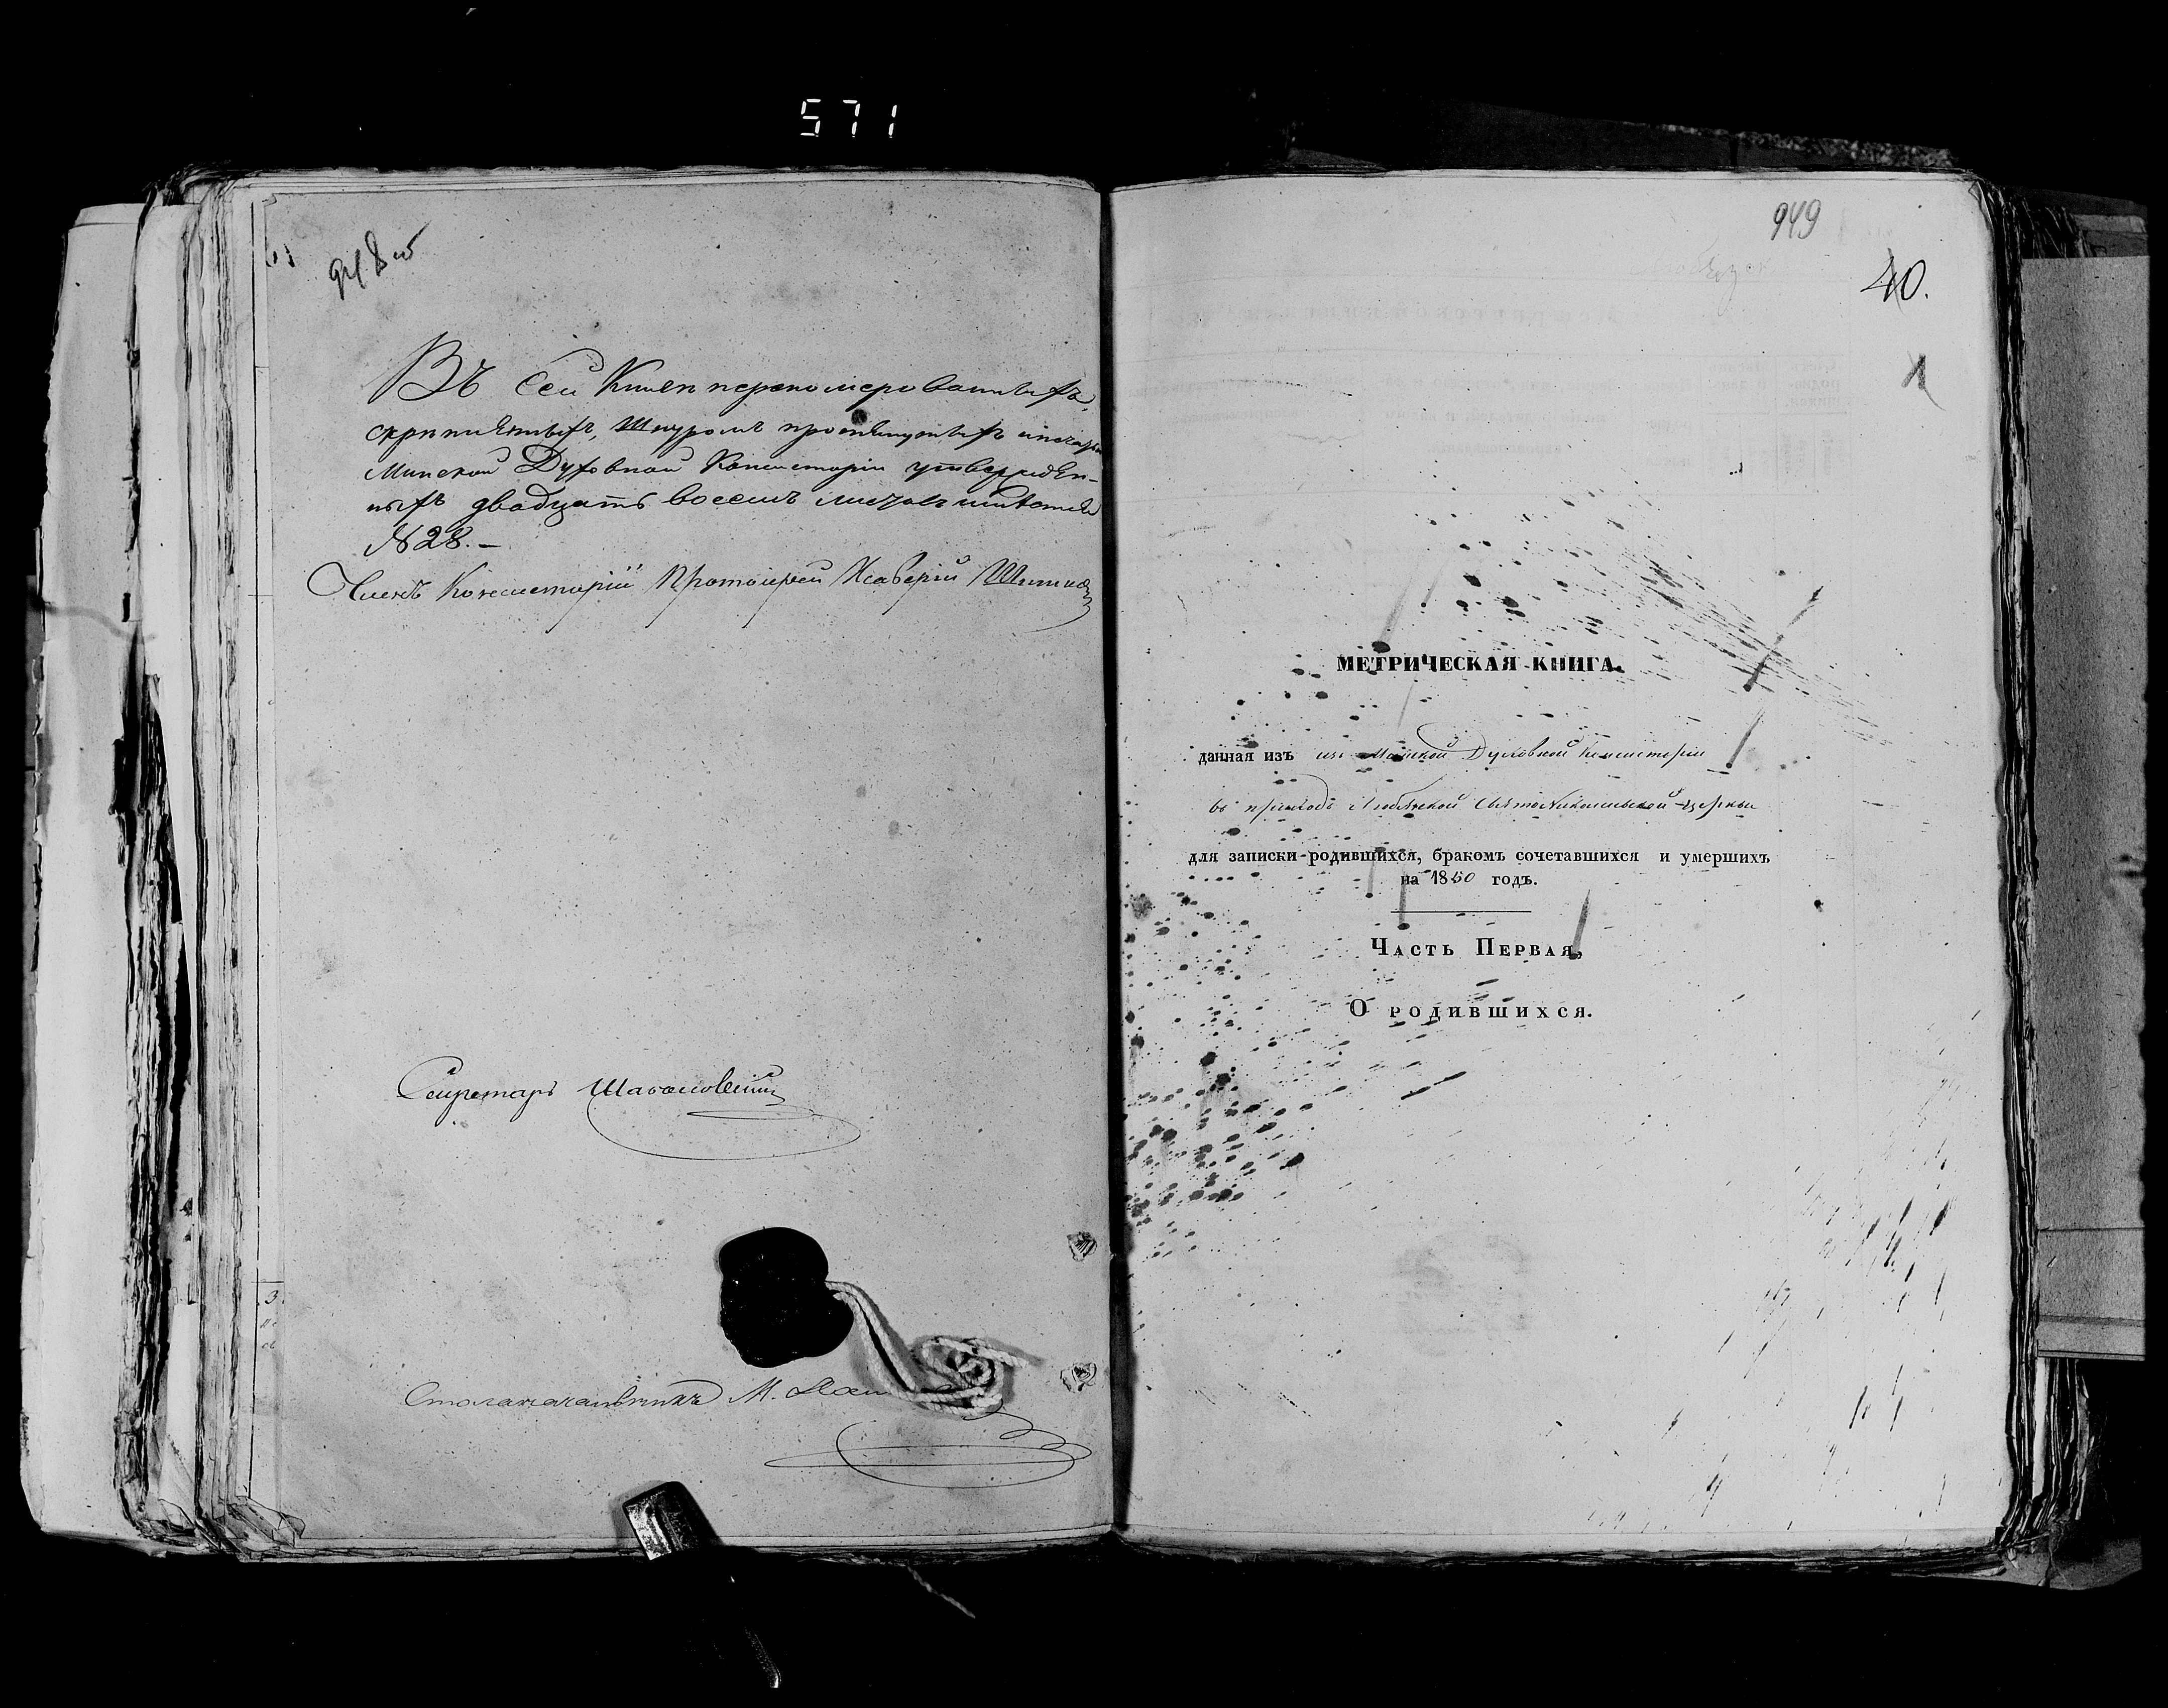 571
948 об
Въ сей Книге переномерованныхъ,
скрепленныхъ, Шнуромъ протянутыхъ и печатью
Минской Духовной Консисторіи утвержден-
ныхъ двадцать восемь листовъ
№ 28. –
Членъ Консисторіи Протоіерей Ксаверій
Секретарь
Столоначальникъ М.
949
40.
1
МЕТРИЧЕСКАЯ КНИГА.
данная изъ изъ Минской Духовной Консисторіи
въ приходъ Любянской Свято Николаевской церкви
для записки родившихся, бракомъ сочетавшихся и умершихъ
на 1850 годъ.
Часть Первая,
О родившихся.